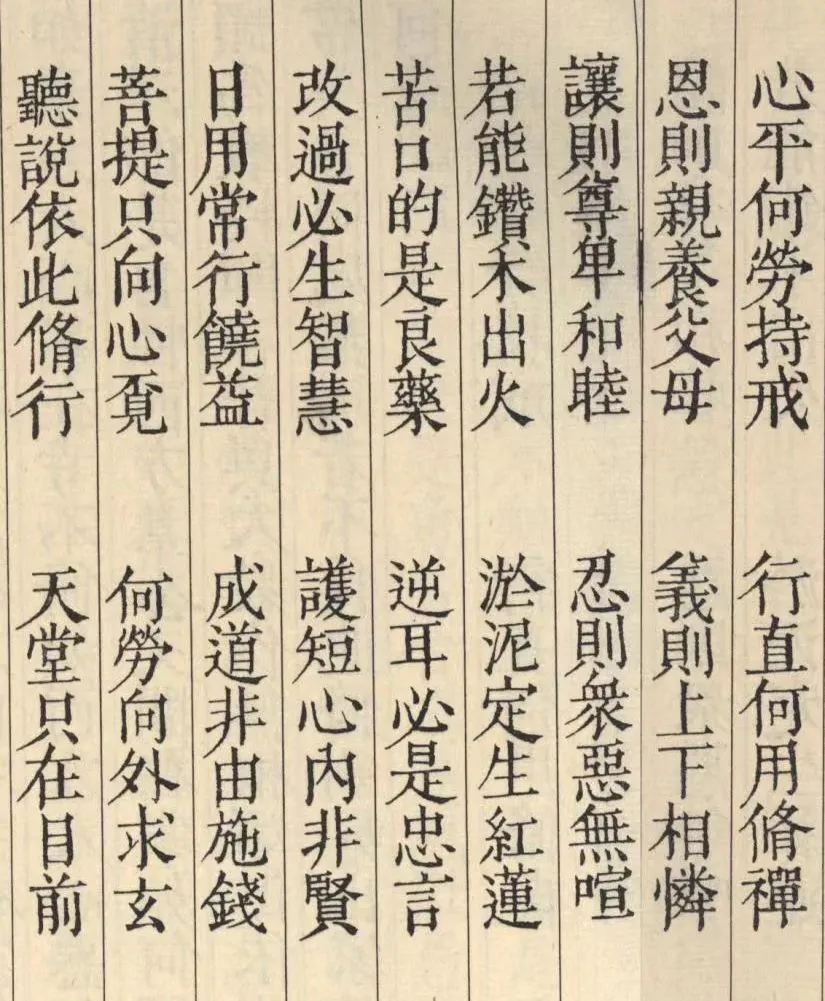 心平何勞持戒 行直何用脩禪
恩則親養父母 義則上下相憐
讓則尊卑和睦 忍則衆惡無喧
若能鑽木出火 淤泥定生紅蓮
苦口的是良藥 逆耳必是忠言
改過必生智慧 護短心內非賢
日用常行饒益 成道非由施錢
菩提只向心覔 何勞向外求玄
聽說依此脩行 天堂只在目前